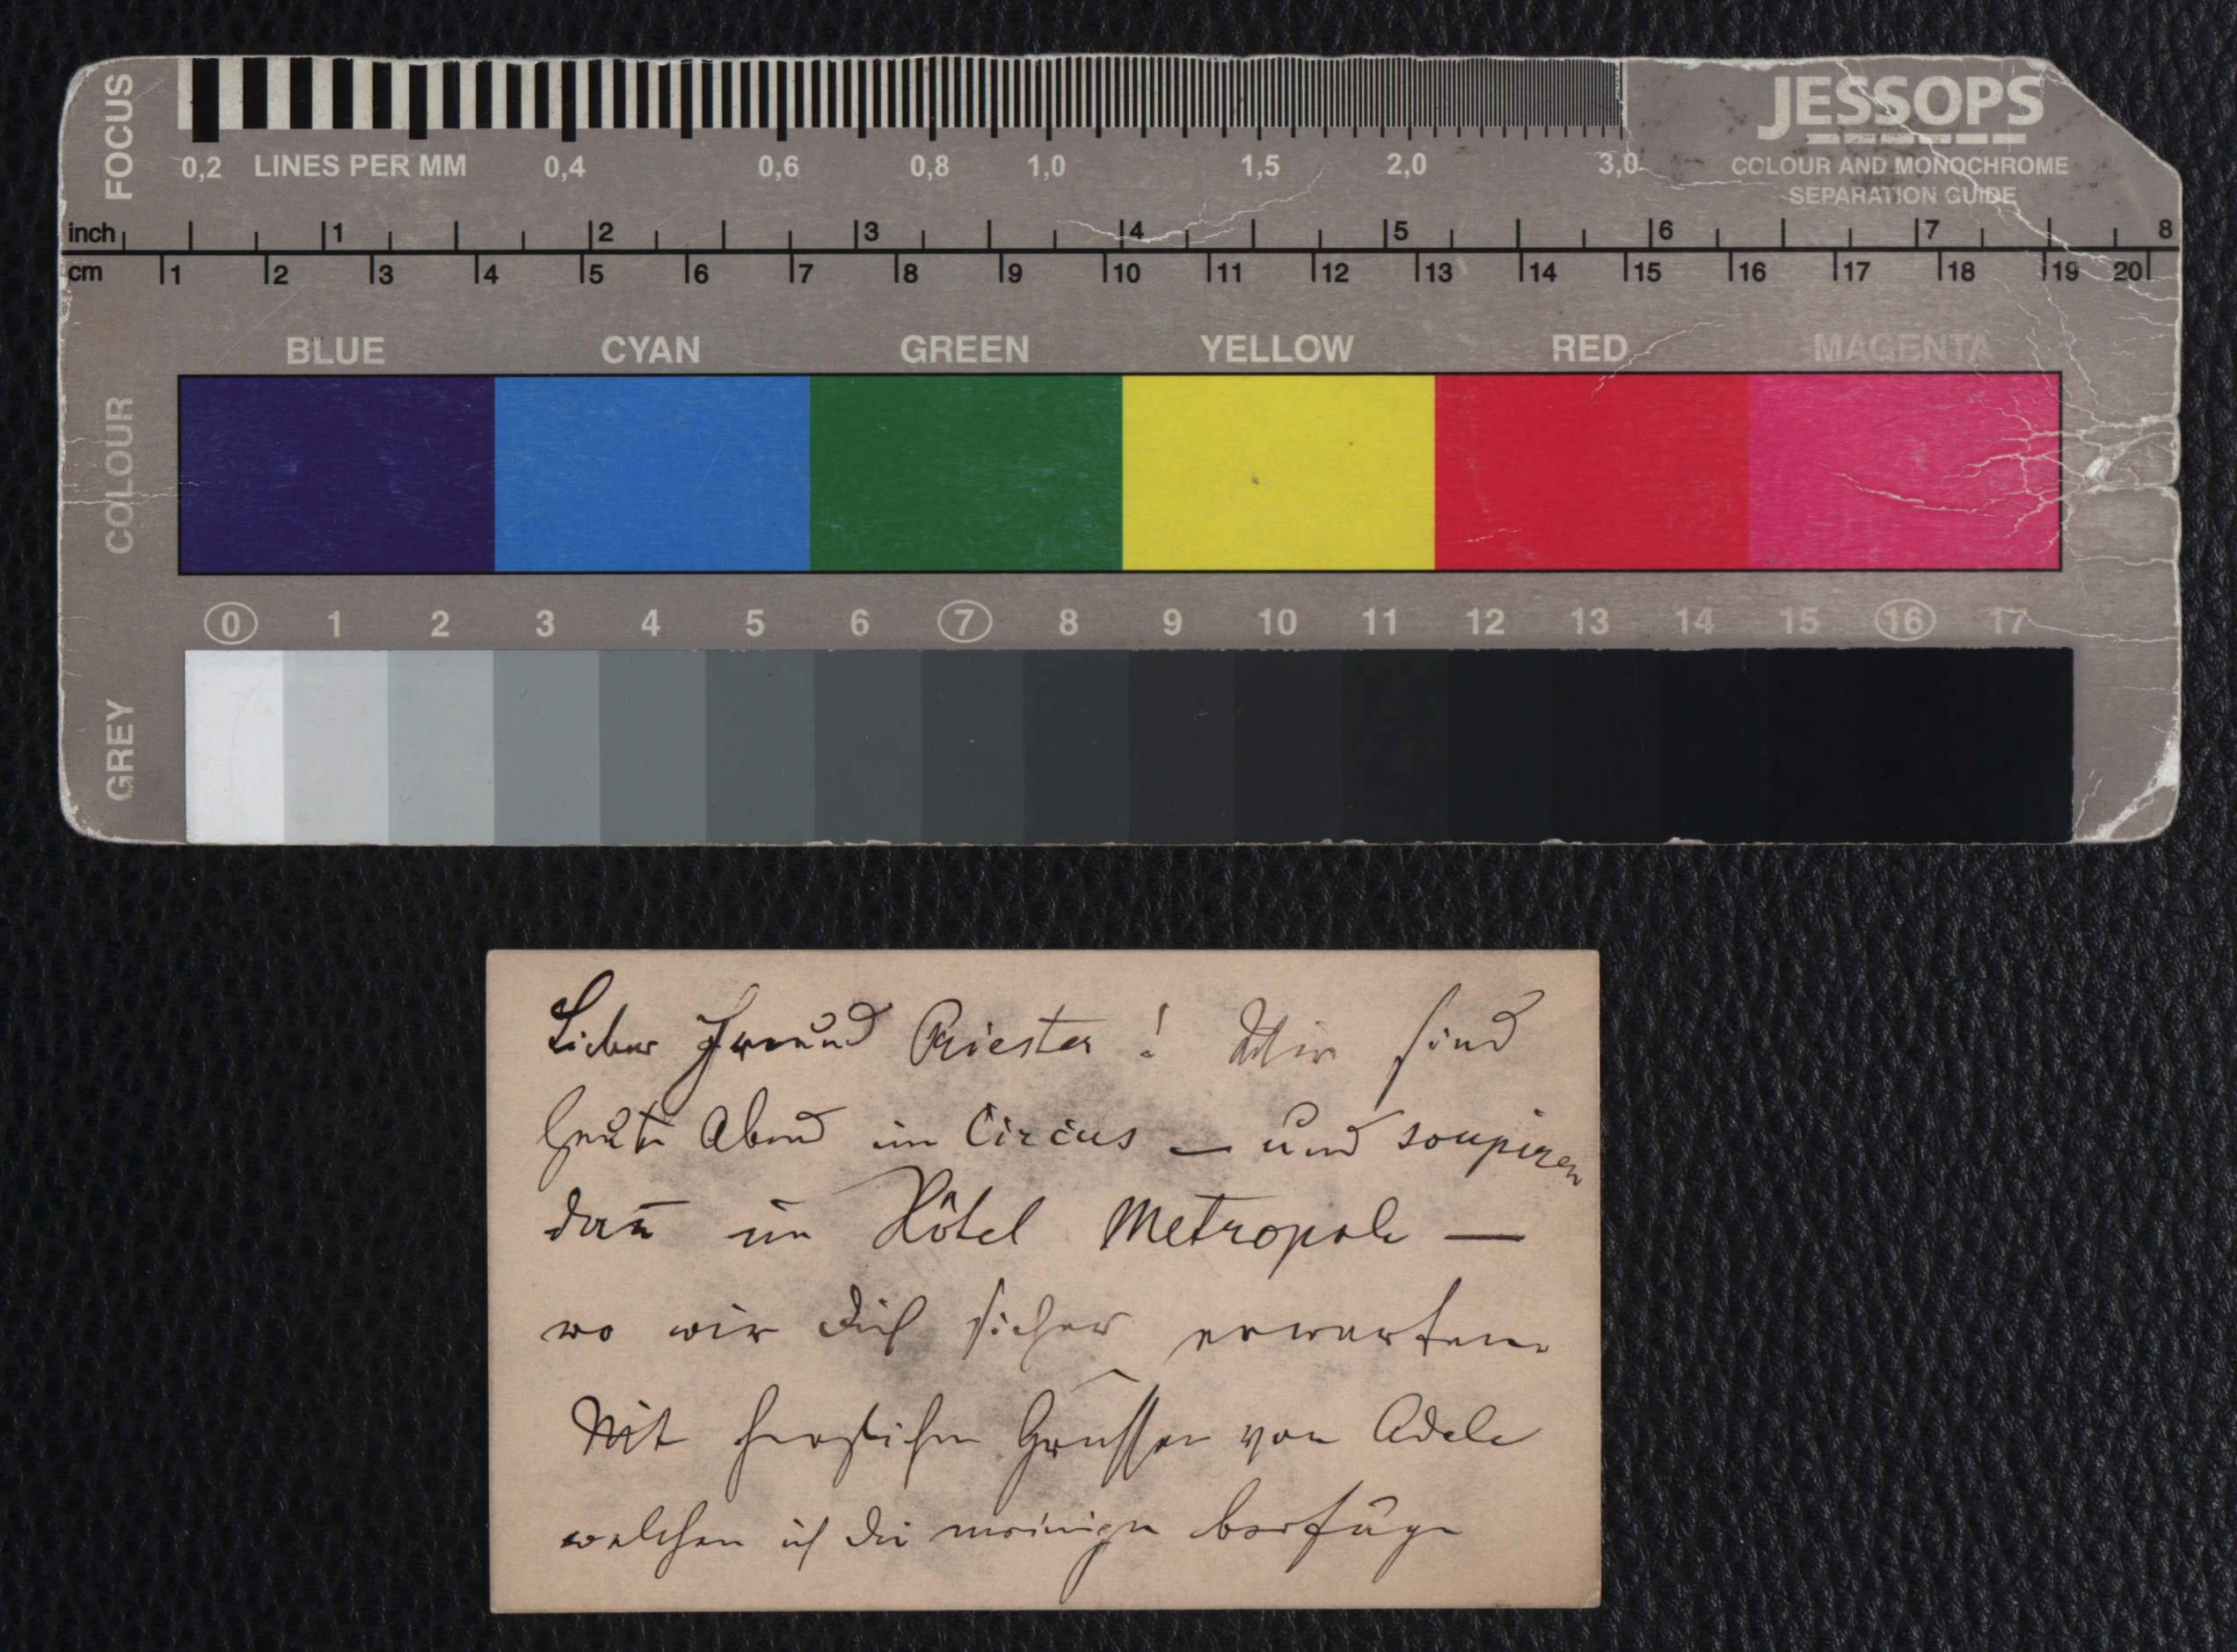 FOCUS
JESSOPS
COLOUR AND MONOCHROME
SEPARATION GUIDE
0,2 LINES PER MM 0,4 0,6 0,8 1,0 1,5 2,0 3,0
inch 1 2 3 4 5 6 7 8
cm 1 2 3 4 5 6 7 8 9 10 11 12 13 14 15 16 17 18 19 20
COLOUR
BLUE CYAN GREEN YELLOW RED MAGENTA
0 1 2 3 4 5 6 7 8 9 10 11 12 13 14 15 16 17
GREY
Lieber Freund Priester! Wir sind
heute Abend im Circus — und soupiren
dan̄ im Hôtel Metropole —
wo wir Dich sicher erwarten
Mit herzlichen Grüssen von Adele
welchen ich die meinigen beifüge